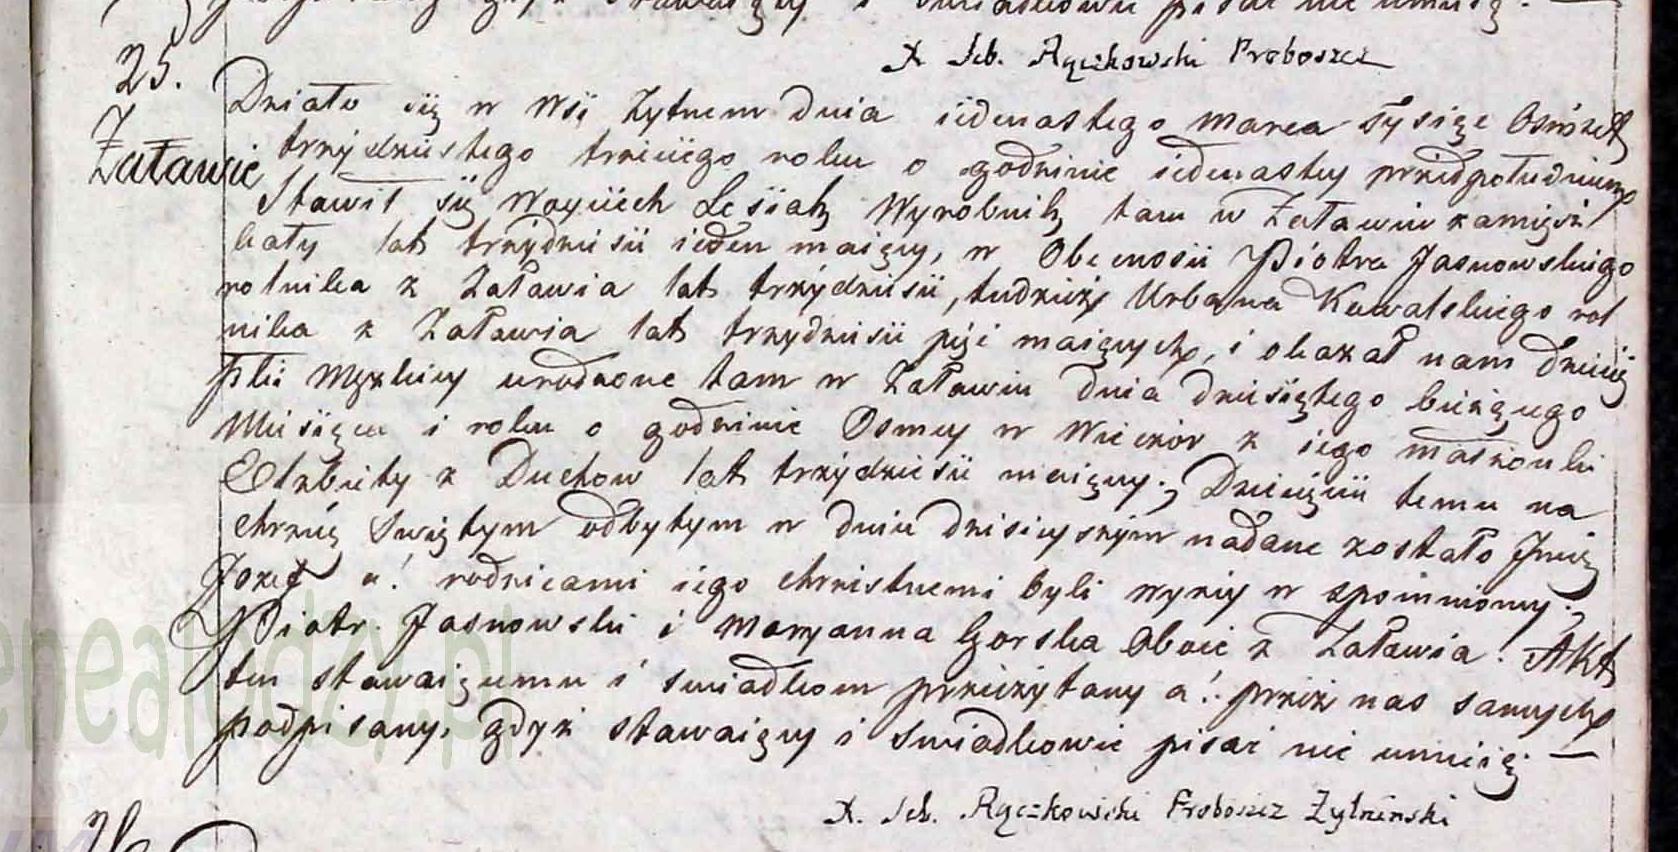 pisać nie umieią. —
X Seb. Rączkowski Proboszcz
25.
Załawie
Działo się w Wsi Zytnem dnia iedenastego marca Tysiąc Osmset
trzydziestego trzeciego roku o godzinie iedenastey przedpołudniem
Stawił się Woyciech Lesiak Wyrobnik tam w Załawiu zamiesz
kały lat trzydzieści ieden maiący, w Obecności Piotra Jasnowskiego
rolnika z Załawia lat trzydzieści, tudzież Urbana Kowalskiego rol
nika z Załawia lat trzydzieści pięć maiących, i okazał nam Dziecię
płci Męzkiey urodzone tam w Załawiu dnia dziesiątego bieżącego
Miesiąca i roku o godzinie Osmey w Wieczór z iego małżonki
Elzbiety z Duchow lat trzydzieści maiącey; Dziecięciu temu na
chrzcie Swiętym odbytym w dniu dzisieyszym nadane zostało Jmię
Jozef a! rodzicami iego chrzestnemi byli wyzey w spomniony;
Piotr Jasnowski i Maryanna Gorska Oboie z Załawia! AKt
ten stawaiącemu i swiadkom przeczytany a! przez nas samych
podpisany, gdyż stawaiący i Swiadkowie pisać nie umieią —
X. Seb. Rączkowski Proboszcz Zytnienski
26
genealodzy.pl